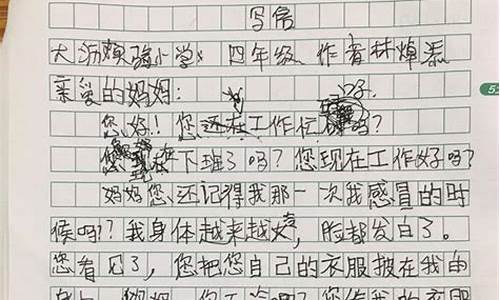 写信
大沥实验小学 四年级 作者林焯悉
亲爱的妈妈:
您好!您还在工作忙吗?
您现在下班了吗?您现在工作好吗?
妈妈您还记得我那一次我感冒的时
候吗?我身体越来越冷,脸都发白了。
您看见了,您把您自己的衣服披在我的
身上,妈妈,您不冷吗?您给我的衣服